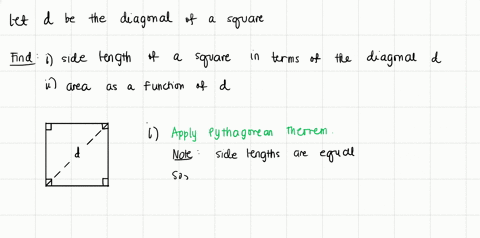 Let d be the diagonal of a square
Find: i) side length of a square in terms of the diagonal d
ii) area as a function of d
d
i) Apply Pythagorean Theorem.
Note: side lengths are equal
So,